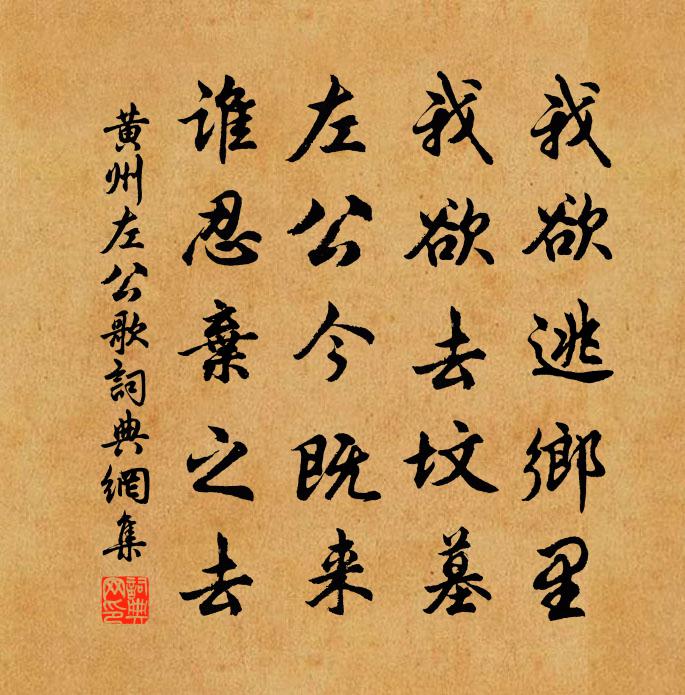 我欲逃鄉里
我欲去坟墓
左公今既来
誰忍棄之去
黄州左公歌詞典網集
詞典网印